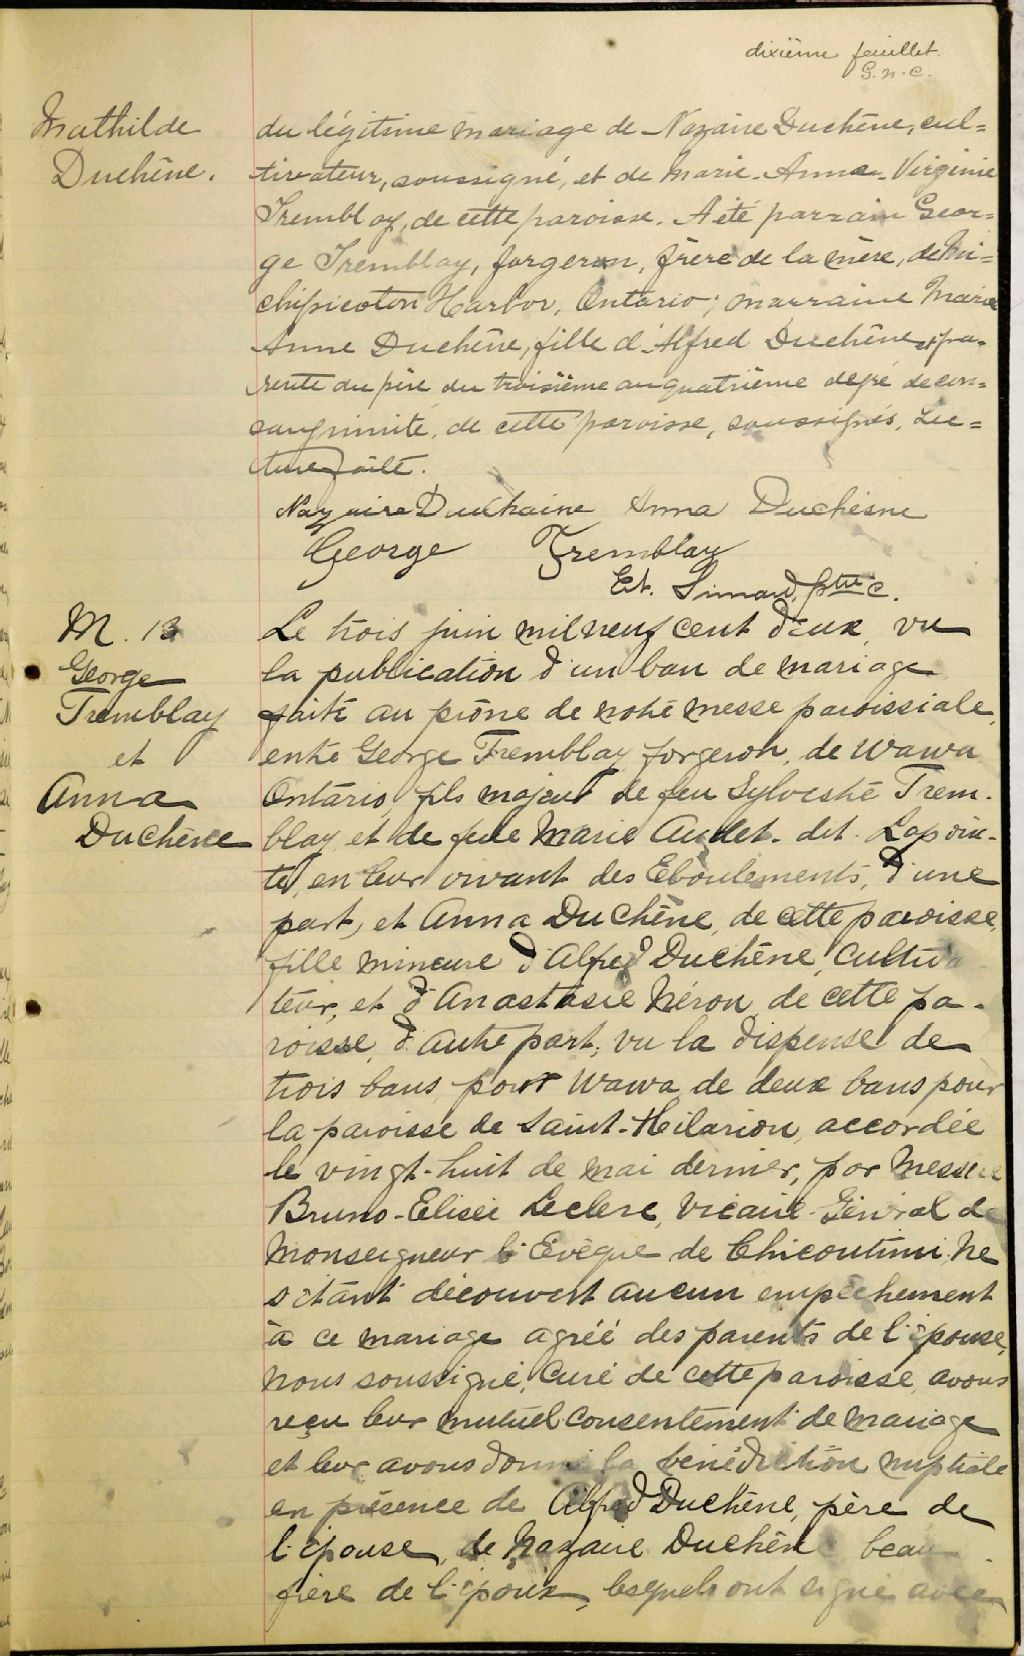 dixième feuillet.
G. N. C.
Mathilde
Duchêne.
du légitime mariage de Nazaire Duchêne, cul=
tivateur, soussigné, et de Marie-Anna-Virginie
Tremblay, de cette paroisse. A été parrain Geor=
ge Tremblay, forgeron, frère de la mère, de Mi=
chipicoton Harbor, Ontario; marraine Marie
Anne Duchêne, fille d'Alfred Duchêne, pa-
rente du père du troisième au quatrième degré de con=
sanguinité, de cette paroisse, soussignés. Lec=
ture faite.
Nazaire Duchaine Anna Duchesne
George Tremblay
Et. Simard, ptre c.
M. 13
George
Tremblay
et
Anna
Duchêne
Le trois juin mil neuf cent deux, vu
la publication d'un ban de mariage
faite au prône de notre messe paroissiale,
entre George Tremblay forgeron, de Wawa
Ontario, fils majeur de feu Sylvestre Trem-
blay, et de feue Marie Audet-dit-Lapoin-
te, en leur vivant des Eboulements, d'une
part, et Anna Duchêne, de cette paroisse,
fille mineure d'Alfred Duchêne, cultiva
teur, et d'Anastasie Néron, de cette pa-
roisse, d'autre part; vu la dispense de
trois bans pour Wawa, de deux bans pour
la paroisse de Saint-Hilarion, accordée
le vingt-huit de mai dernier, par Messire
Bruno-Elisée Leclerc, Vicaire-Général de
Monseigneur l'Évêque de Chicoutimi; ne
s'étant découvert aucun empêchement
à ce mariage agréé des parents de l'épouse,
Nous soussigné, curé de cette paroisse, avons
reçu leur mutuel consentement de mariage
et leur avons donné la bénédiction nuptiale
en présence de Alfred Duchêne, père de
l'épouse, de Nazaire Duchêne beau
frère de l'époux, lesquels ont signé avec